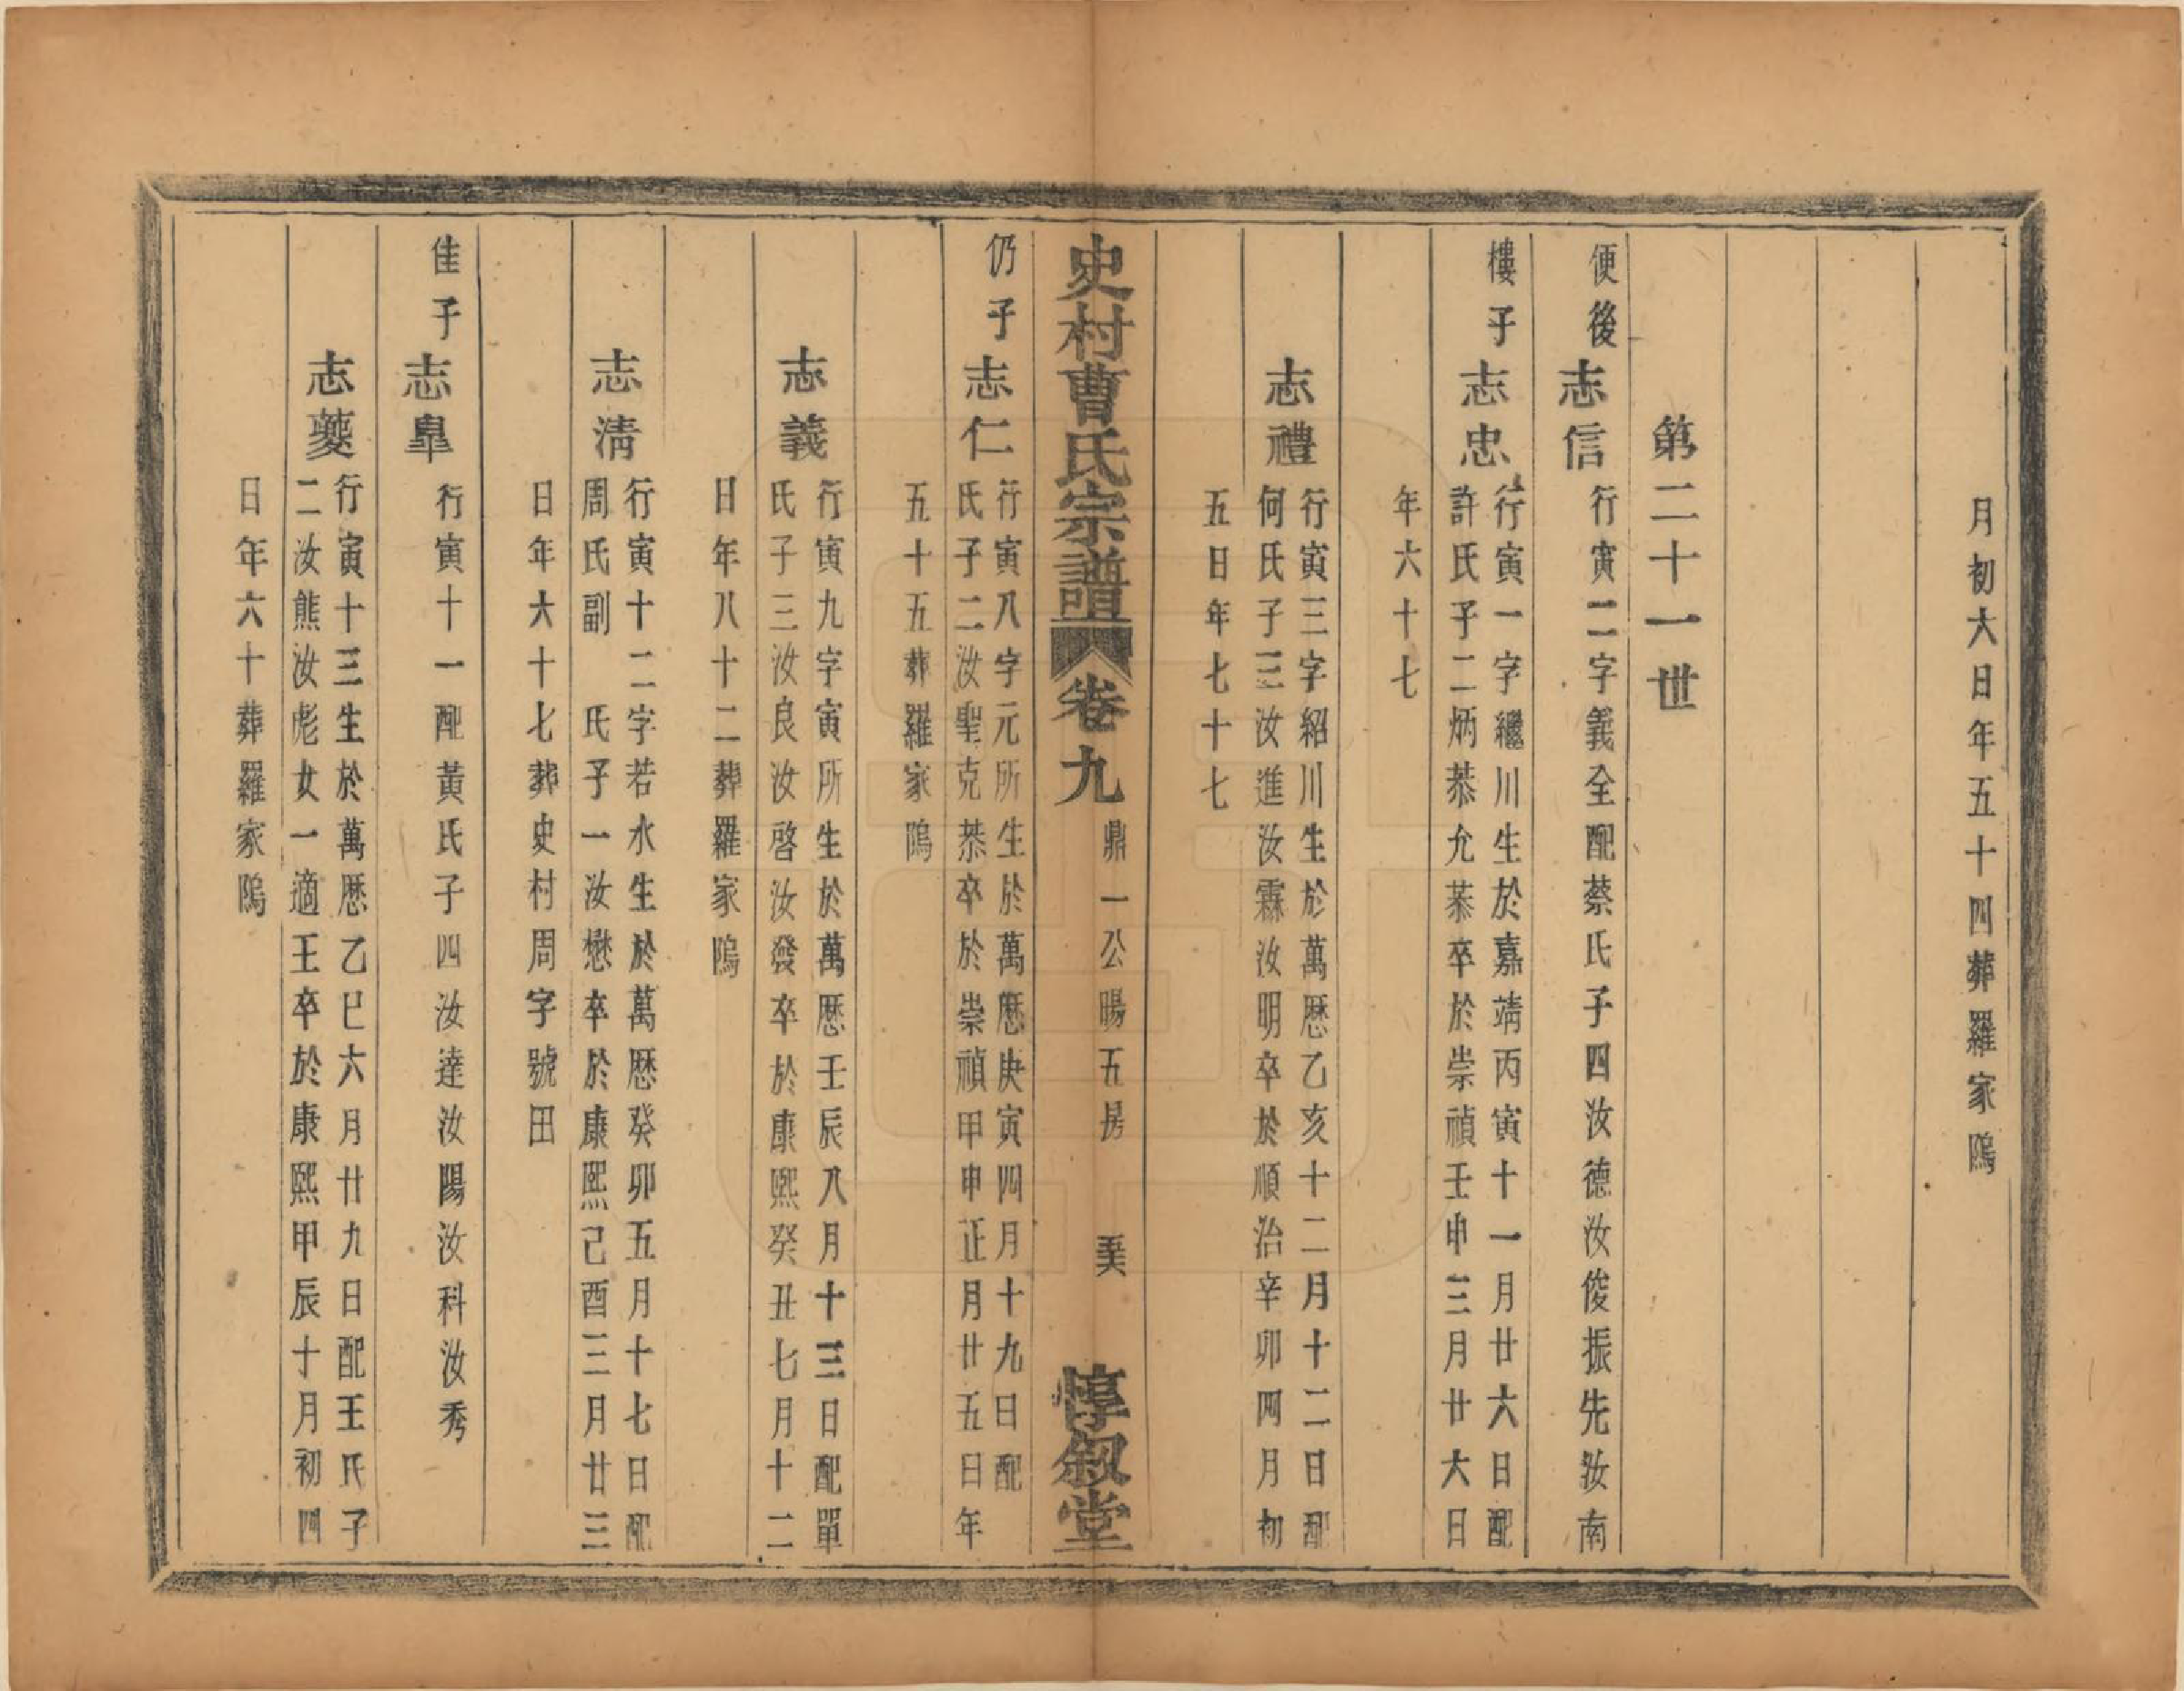 月初六日年五十四葬羅家隝
第二十一世
便後 志信 行寅二字義全配蔡氏子四汝德汝俊振先汝南
樓子 志忠 行寅一字繼川生於嘉靖丙寅十一月廿六日配
許氏子二炳恭允恭卒於崇禎壬申三月廿六日
年六十七
志禮 行寅三字紹川生於萬歷乙亥十二月十二日配
何氏子三汝進汝霖汝明卒於順治辛卯四月初
五日年七十七
史村曹氏宗譜 卷九 鼎一公暘五房 惇叙堂
仍子 志仁 行寅八字元所生於萬歷庚寅四月十九日配
氏子二汝聖克恭卒於崇禎甲申正月廿五日年
五十五葬羅家隝
志義 行寅九字寅所生於萬歷壬辰八月十三日配單
氏子三汝良汝啓汝發卒於康熙癸丑七月十二
日年八十二葬羅家隝
志清 行寅十二字若水生於萬歷癸卯五月十七日配
周氏副 氏子一汝懋卒於康熙己酉三月廿三
日年六十七葬史村周字號田
佳子 志臯 行寅十一配黃氏子四汝達汝陽汝科汝秀
志夔 行寅十三生於萬歷乙巳六月廿九日配王氏子
二汝熊汝彪女一適王卒於康熙甲辰十月初四
日年六十葬羅家隝